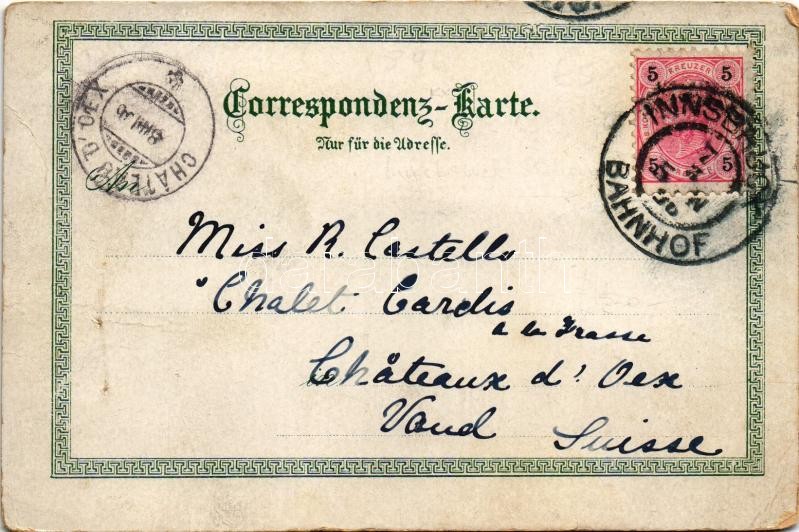 Correspondenz-Karte.
Nur für die Adresse.
An
5 KREUZER 5
5 5
INNSBRUCK
BAHNHOF
CHÂTEAU D'OEX
Miss R. Castello
Chalet Cardis
a la Frasse
Châteaux d'Oex
Vaud Suisse